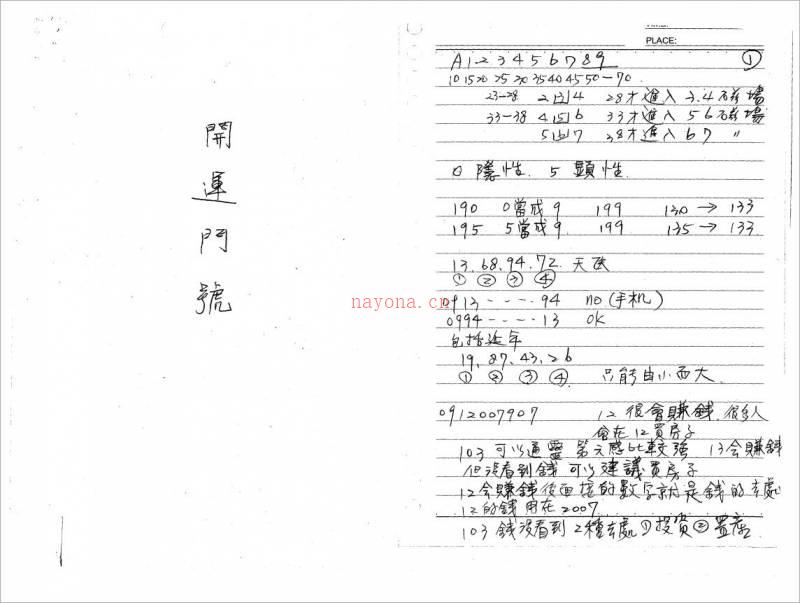 開運門號
PLACE:
①
A123456789
10 15 20 25 30 35 40 45 50-70
23-28 234 28才進入 3.4磁場
33-38 456 33才進入 56磁場
567 38才進入 67 〃
0 隱性. 5 顯性.
190 0當成9 199 130 → 133
195 5當成9. 199 135 → 133
13.68.94.72. 天医
① ② ③ ④
0913----.94 no (手机)
0994----.13 OK
包括近年
19.87.43.26
① ② ③ ④. 只能由小而大.
0912007907 12 很會賺錢. 很多人
會在12買房子
103 可以通靈 第六感比較強 13会賺錢
但沒看到錢 可以建議買房子
12会賺錢後面接的數字就是錢的去處
12的錢用在2007
103 錢沒看到 2種去處 ①投資 ②置產.
nayona.cn